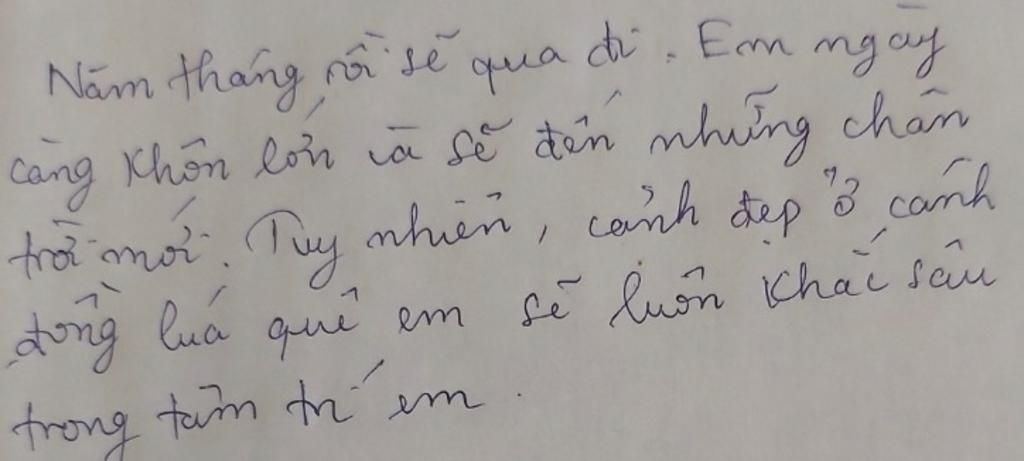 Năm tháng rồi sẽ qua đi. Em ngày
càng khôn lớn và sẽ đến những chân
trời mới. Tuy nhiên, cảnh đẹp ở cánh
đồng luá quê em sẽ luôn khắc sâu
trong tâm trí em.